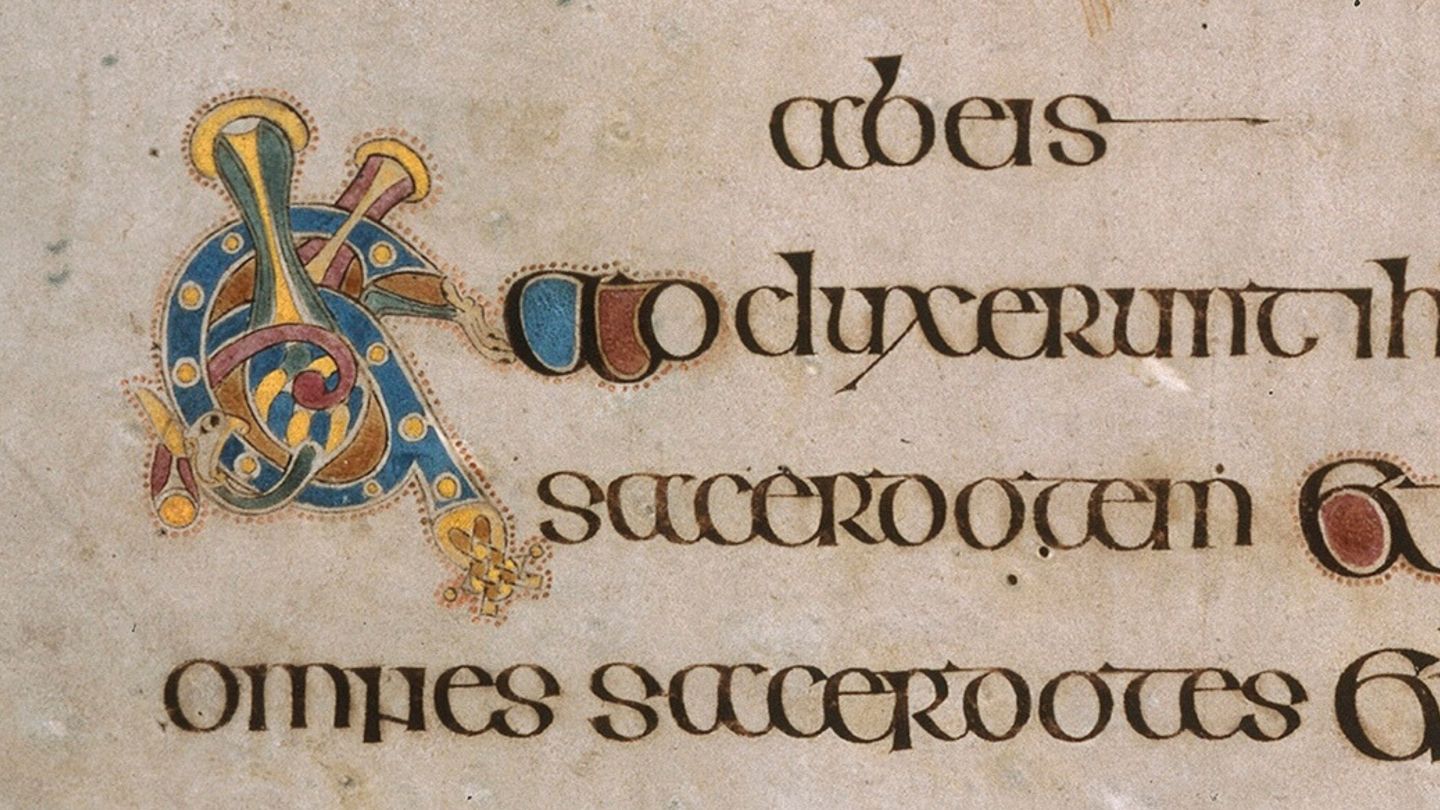 abeis
Et adduxerunt ih
sacerdotem et
omnes sacerdotes et